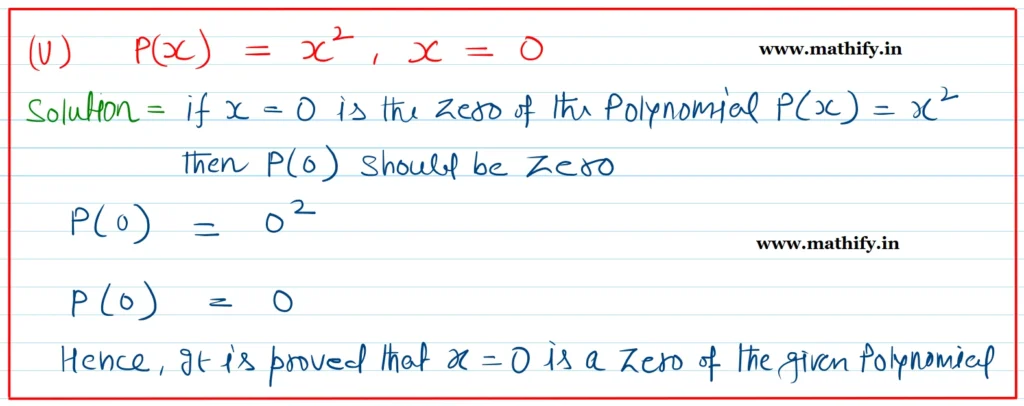 (V) P(x) = x², x = 0 www.mathify.in
Solution = if x = 0 is the zero of the Polynomial P(x) = x²
then P(0) should be zero
P(0) = 0²
www.mathify.in
P(0) = 0
Hence, It is proved that x = 0 is a zero of the given Polynomial